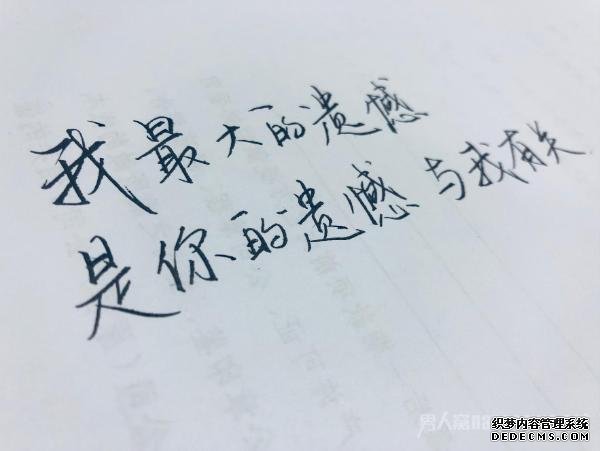 我最大的遗憾
是你的遗憾与我有关
男人窝
织梦内容管理系统
DEDECMS.COM